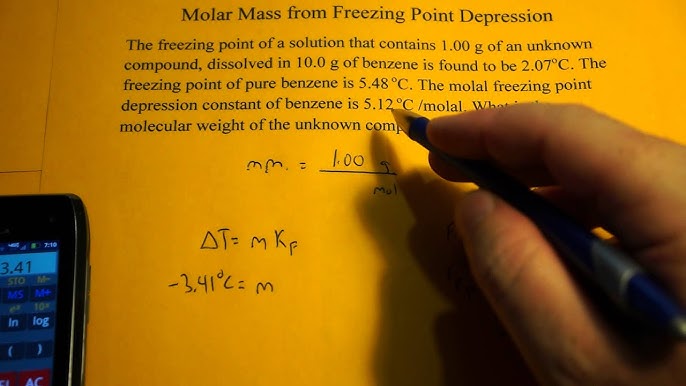 Molar Mass from Freezing Point Depression
The freezing point of a solution that contains 1.00 g of an unknown
compound, dissolved in 10.0 g of benzene is found to be 2.07°C. The
freezing point of pure benzene is 5.48 °C. The molal freezing point
depression constant of benzene is 5.12 °C /molal.
molecular weight of the unknown
mm. = 1.00 g
mol
ΔT = m KF
-3.41°C = m
7:10
3.41
STO M-
MS M+
ln log
( )
AC